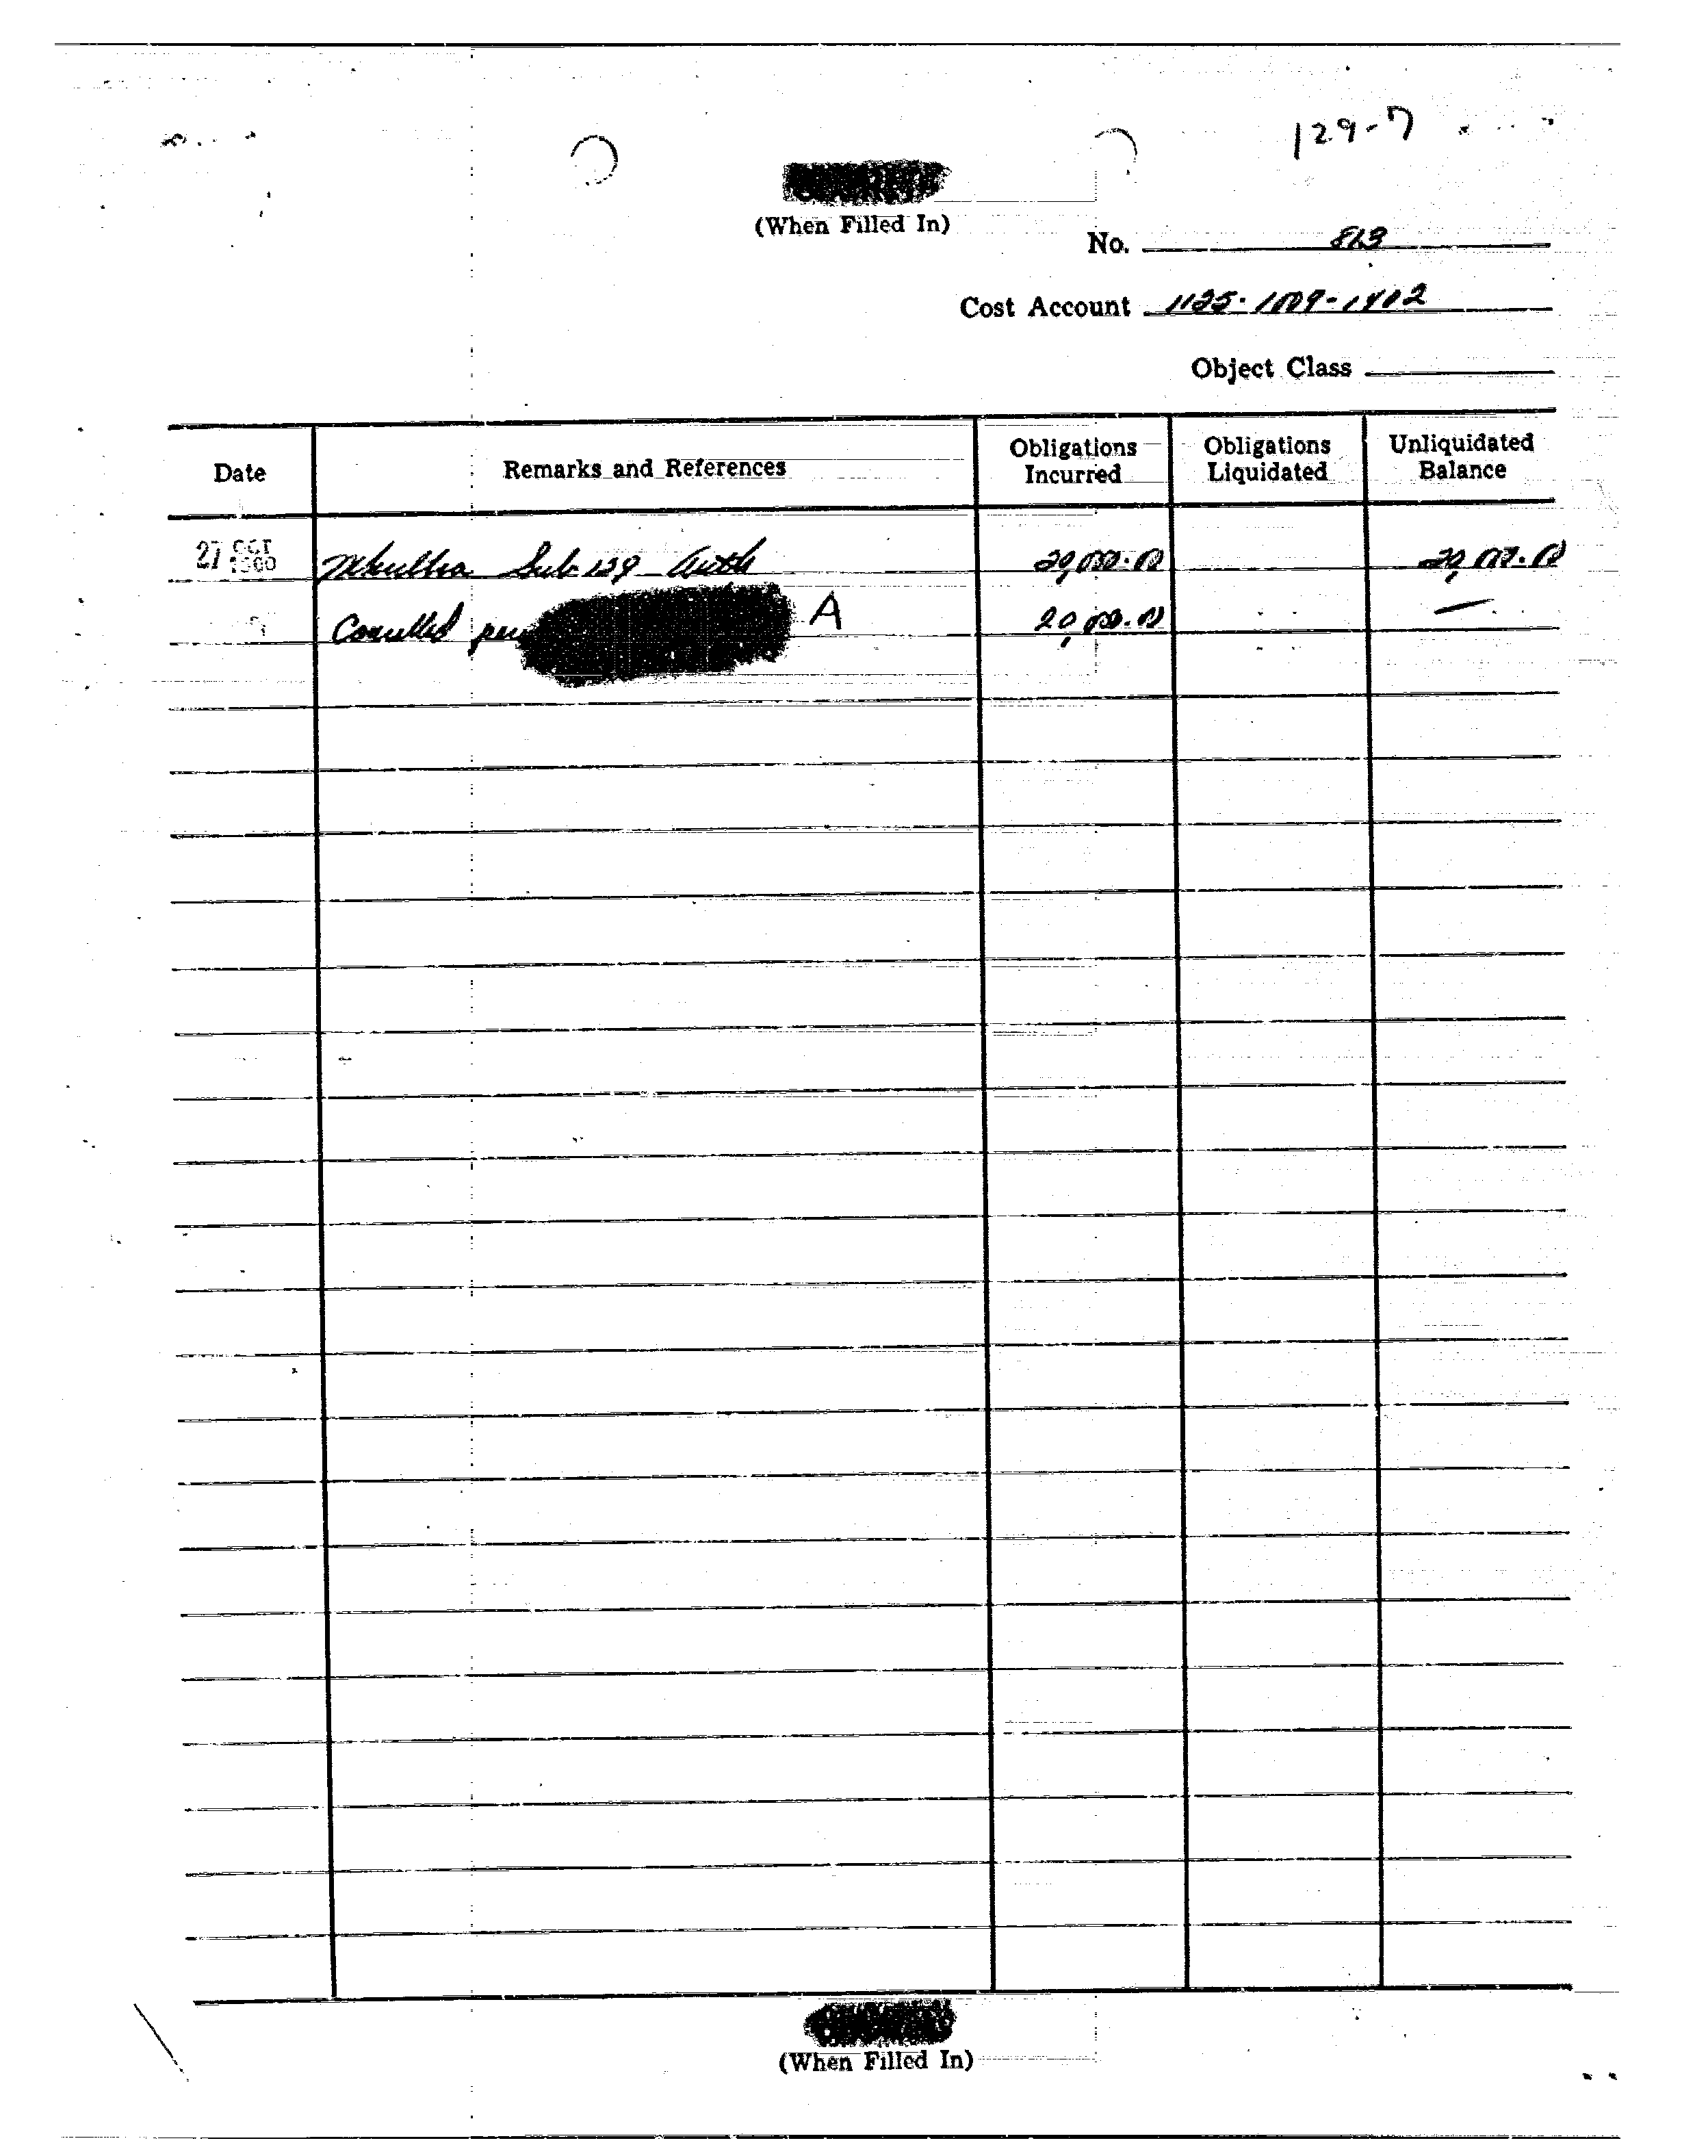 129-7
(When Filled In)
No. 813
Cost Account 1125-1009-1902
Object Class
Date Remarks and References Obligations Incurred Obligations Liquidated Unliquidated Balance
27 OCT 1960 Mkultra Sub 129 Auth 20,000.00 20,000.00
Cancelled per A 20,000.00 —
(When Filled In)